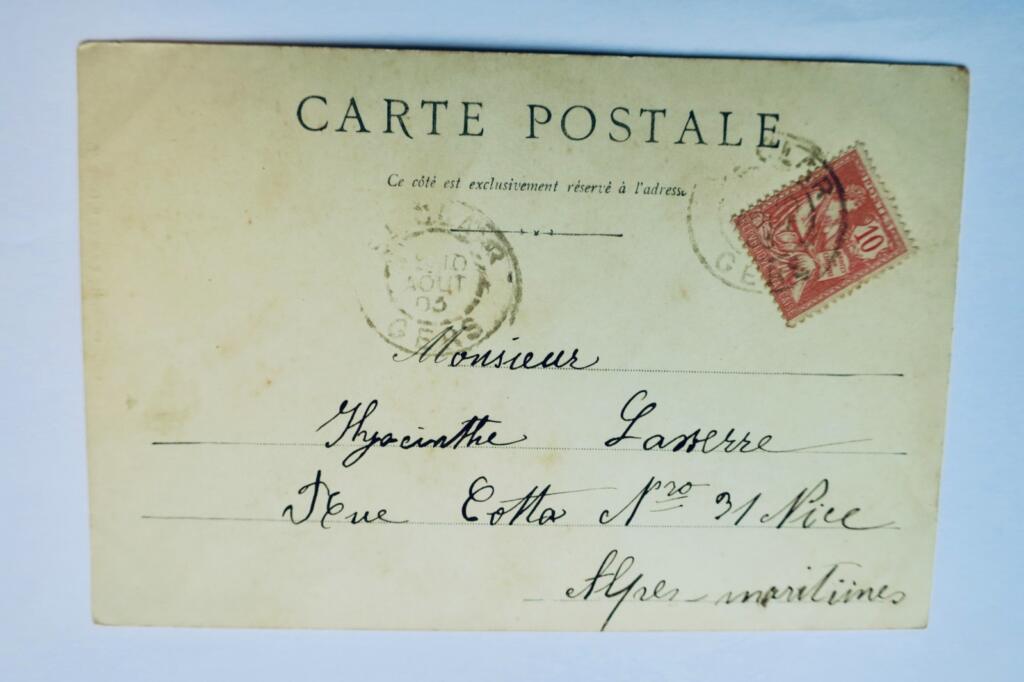 CARTE POSTALE
Ce côté est exclusivement réservé à l'adresse
10
10
AOUT
03
GERS
Monsieur
Hyacinthe Lasserre
Rue Cotta Nro 31 Nice
Alpes-maritimes